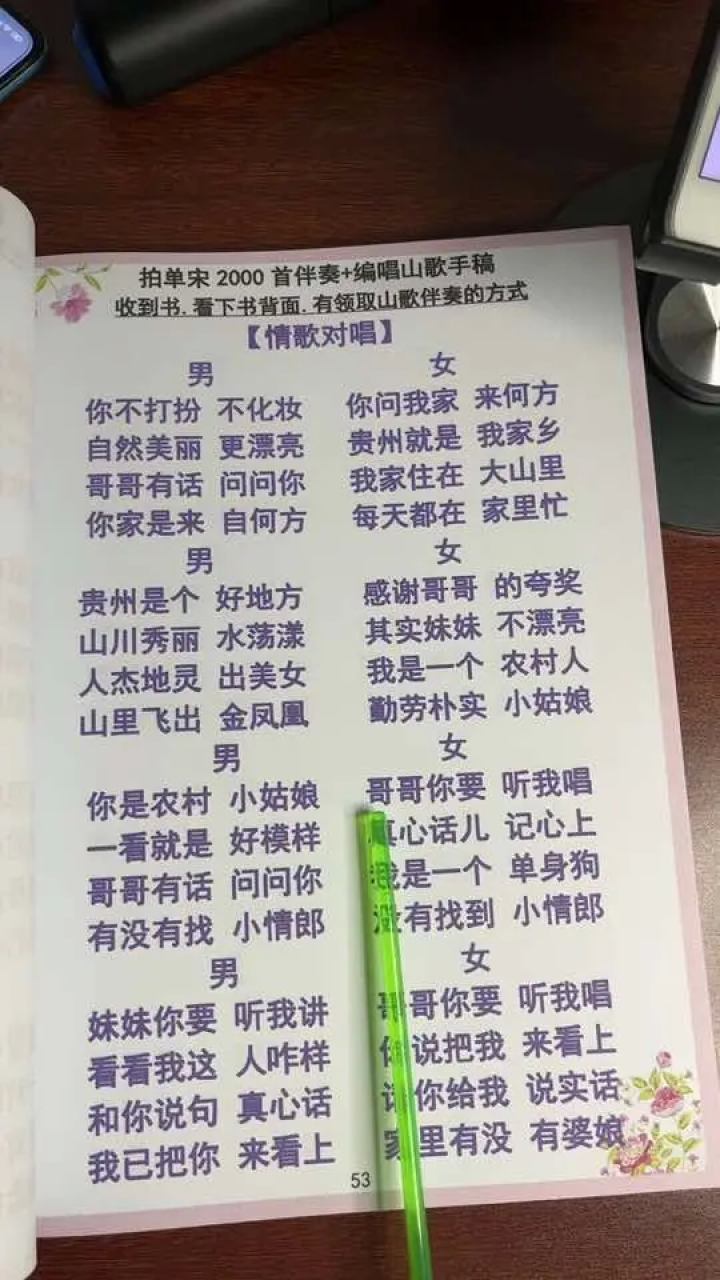 拍单宋 2000 首伴奏+编唱山歌手稿
收到书.看下书背面.有领取山歌伴奏的方式
【情歌对唱】
男
你不打扮 不化妆
自然美丽 更漂亮
哥哥有话 问问你
你家是来 自何方
女
你问我家 来何方
贵州就是 我家乡
我家住在 大山里
每天都在 家里忙
男
贵州是个 好地方
山川秀丽 水荡漾
人杰地灵 出美女
山里飞出 金凤凰
女
感谢哥哥 的夸奖
其实妹妹 不漂亮
我是一个 农村人
勤劳朴实 小姑娘
男
你是农村 小姑娘
一看就是 好模样
哥哥有话 问问你
有没有找 小情郎
女
哥哥你要 听我唱
真心话儿 记心上
我是一个 单身狗
没有找到 小情郎
男
妹妹你要 听我讲
看看我这 人咋样
和你说句 真心话
我已把你 来看上
女
哥哥你要 听我唱
你说把我 来看上
请你给我 说实话
家里有没 有婆娘
53